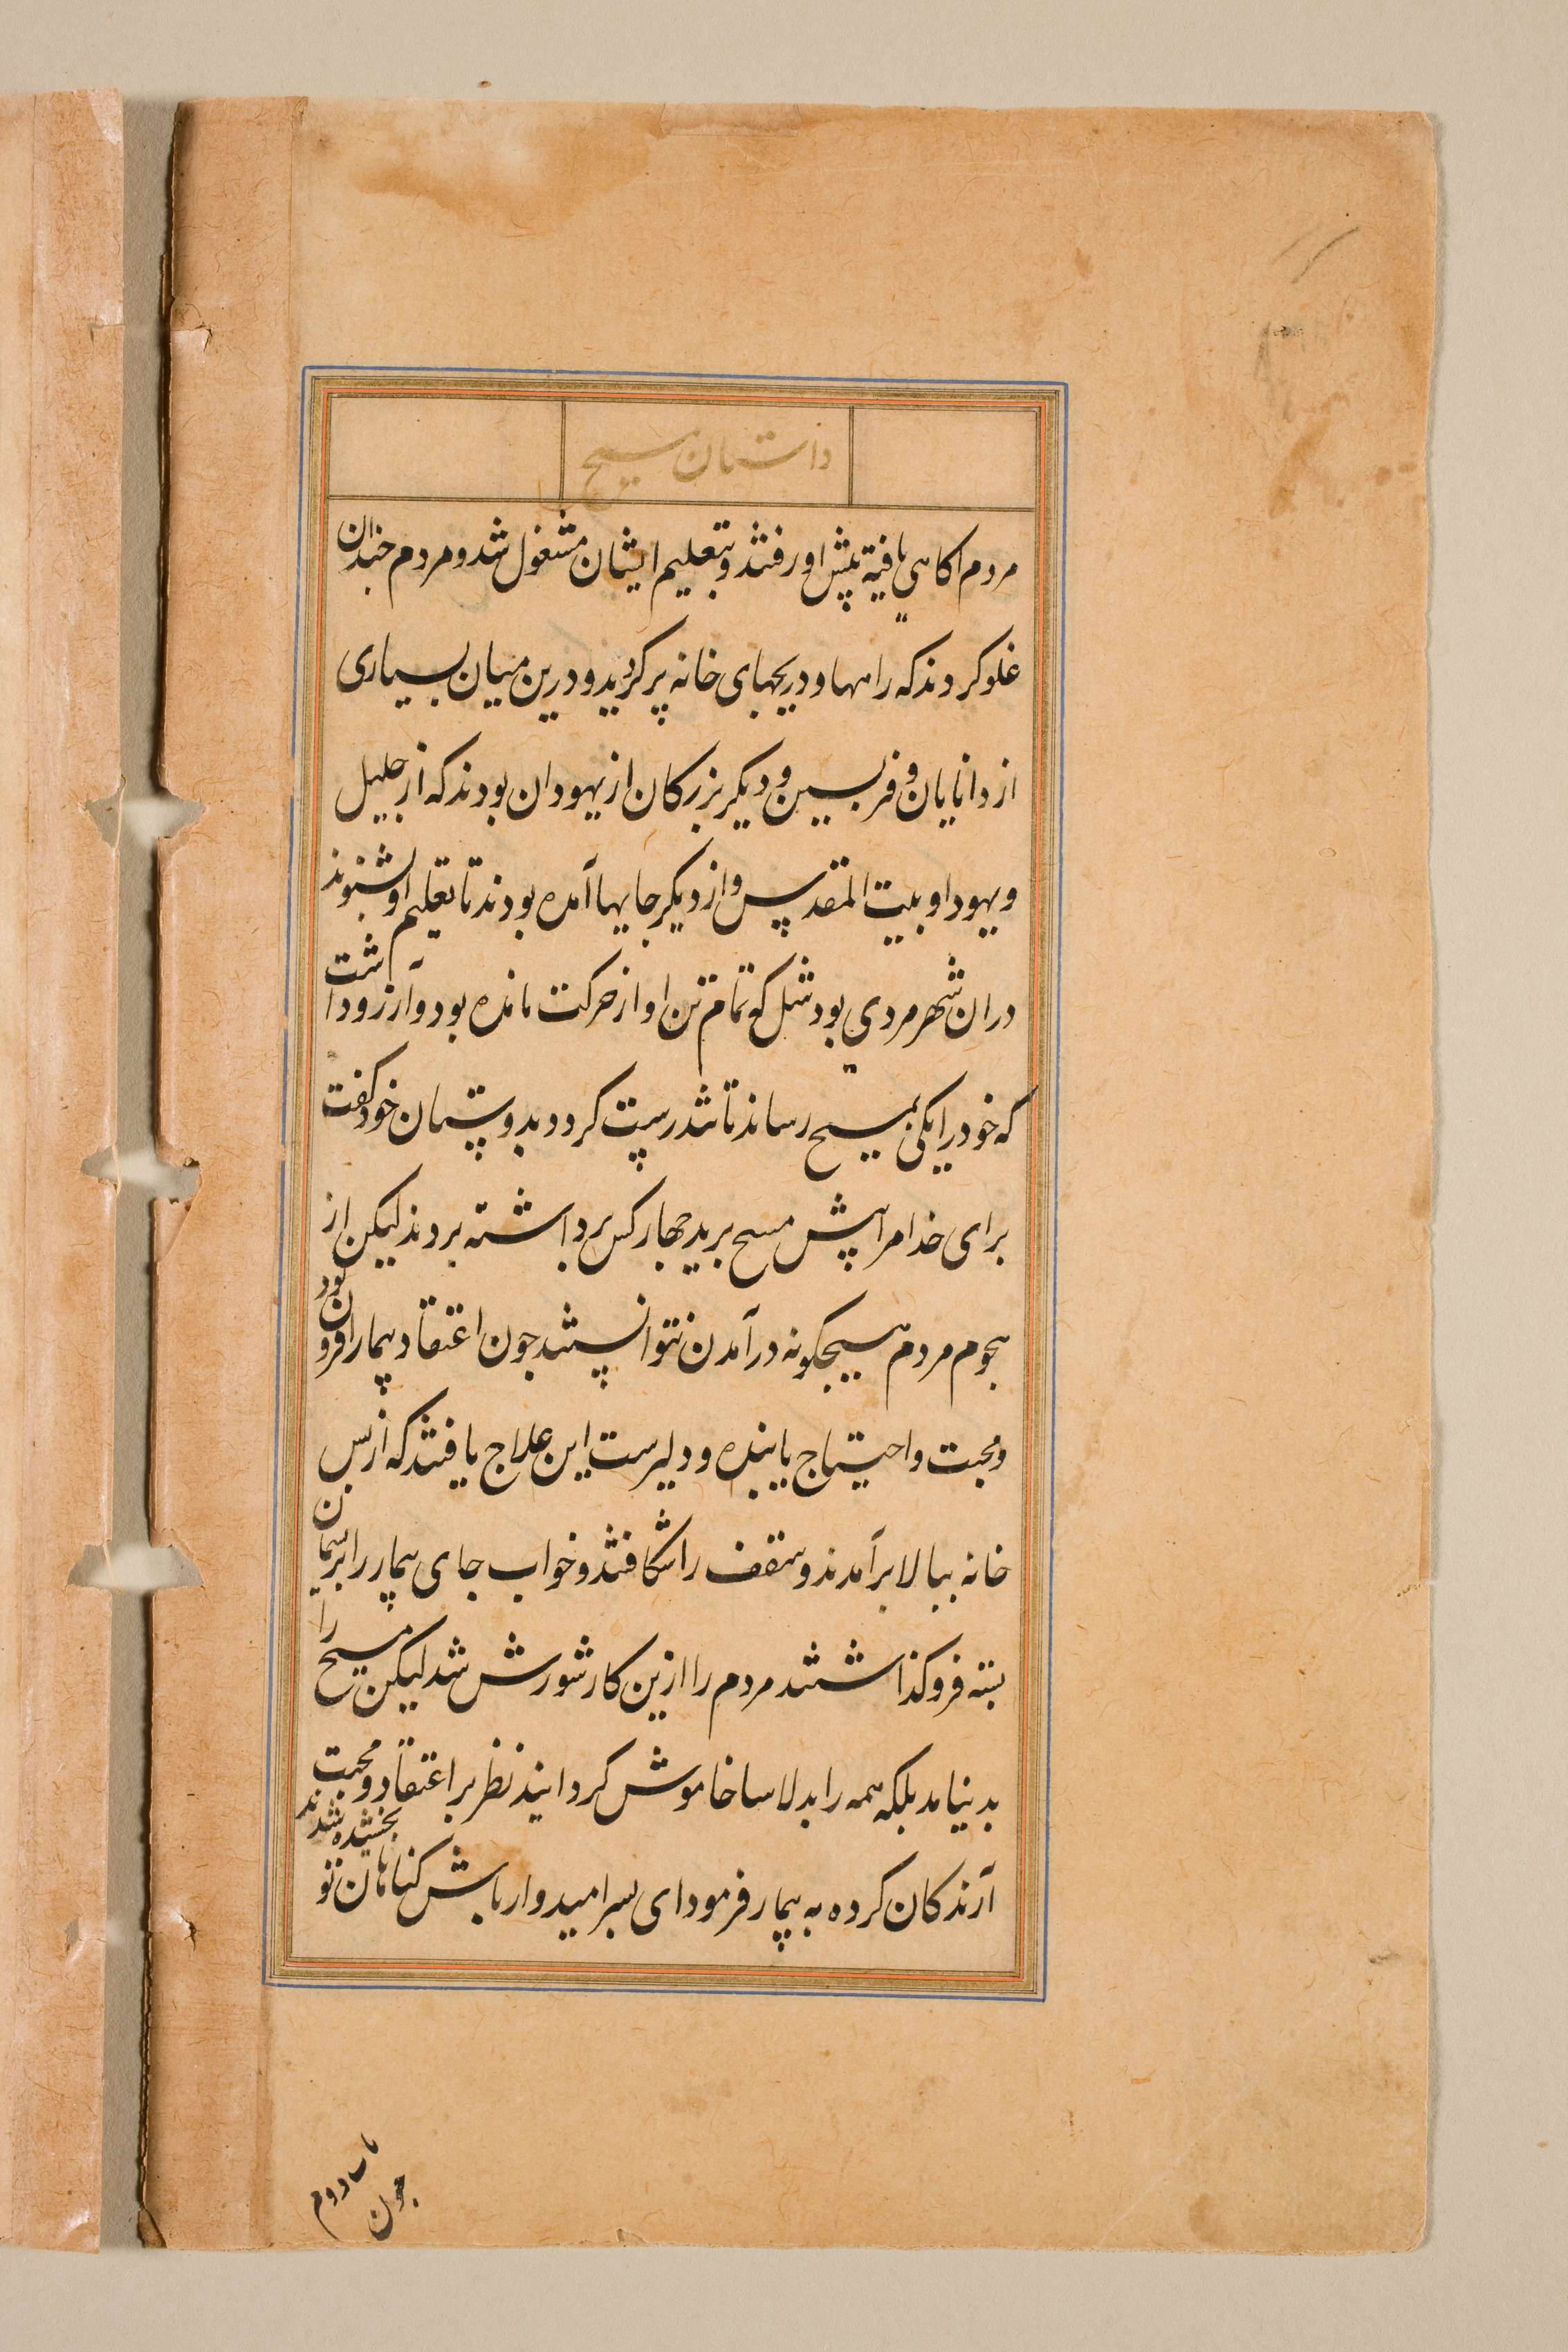 داستان مسیح
مردم اکاهی یافته پیش او رفتند و بتعلیم ایشان مشغول شد و مردم چندان
غلو کردند که راهها و دریچهای خانه پر کردید و درین میان بسیاری
از دانایان و فریسین و دیکر بزرکان از یهودان بودند که از جلیل
و یهودا و بیت المقدس و از دیکر جایها آمده بودند تا تعلیم او بشنوند
دران شهر مردی بود شل که تمام تن او از حرکت مانده بود و آرزو داشت
که خود را یکی بمسیح رساند تا تندرست کردد بدوستان خود کفت
برای خدا مرا پیش مسیح برید چهار کس برداشته بردند لیکن از
هجوم مردم هیچکونه درآمدن نتوانستند چون اعتقاد بیمار افزون بود
و محبت و احتیاج یابنده و دلیرست این علاج یافتند که از پس
خانه ببالا برآمدند و سقف را شکافتند و خواب جای بیمار را بریسمان
بسته فرو کذاشتند مردم را ازین کار شورش شد لیکن مسیح را
بد نیامد بلکه همه را بدلاسا خاموش کردانید نظر بر اعتقاد و محبت
آرندکان کرده به بیمار فرمود ای پسر امیدوار باش کناهان تو بخشیده شدند
باب دوم
چون